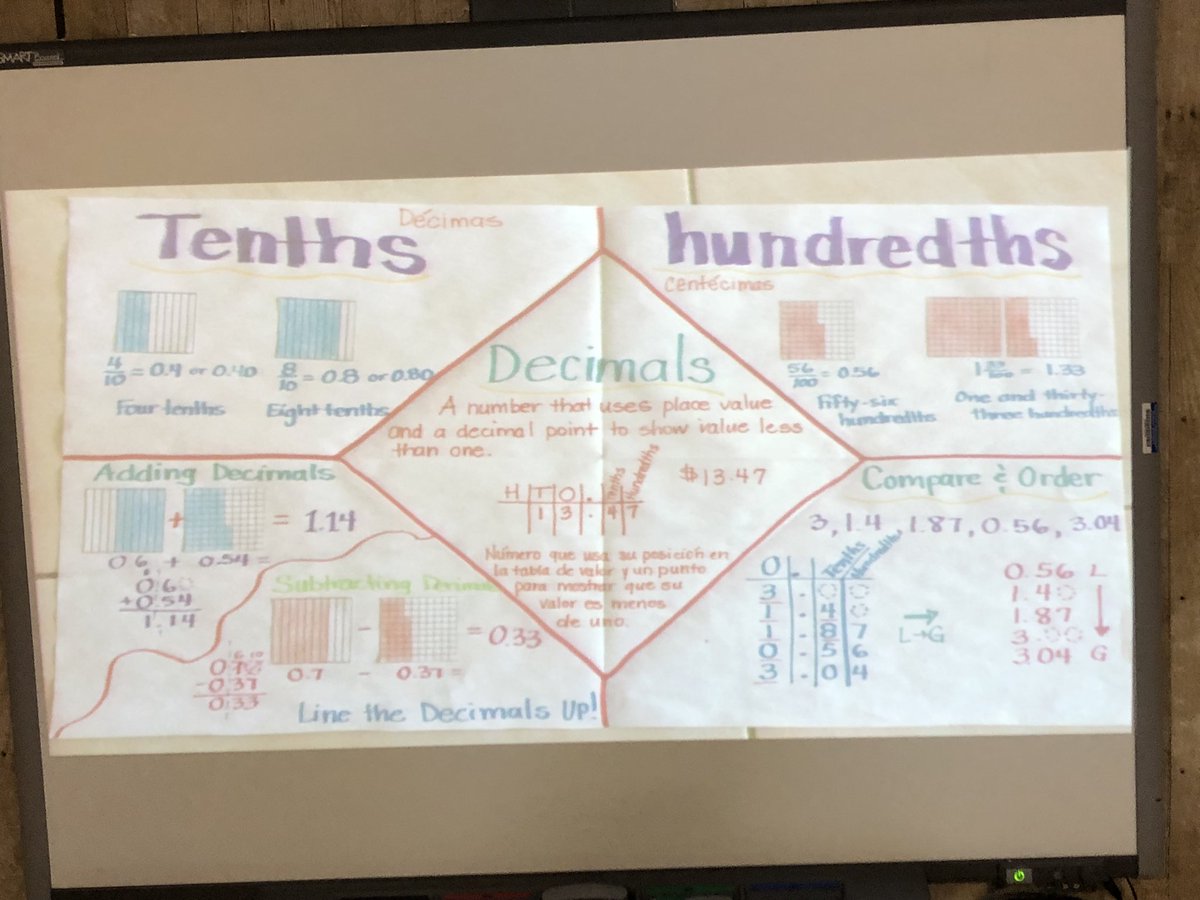 SMART Board
Tenths
Décimas
4/10 = 0.4 or 0.40
Four tenths
8/10 = 0.8 or 0.80
Eight tenths
hundredths
centécimas
56/100 = 0.56
Fifty-six
hundredths
1 33/100 = 1.33
One and thirty-
three hundredths
Decimals
A number that uses place value
and a decimal point to show value less
than one.
$13.47
H T O . Tenths Hundredths
1 3 . 4 7
Número que usa su posición en
la tabla de valor y un punto
para mostrar que su
valor es menos
de uno.
Adding Decimals
+ = 1.14
0.6 + 0.54 =
0.60
+0.54
1.14
Subtracting Decimals
- = 0.33
0.7 - 0.37 =
-0.37
0.33
Line the Decimals Up!
Compare & Order
3, 1.4, 1.87, 0.56, 3.04
O . Tenths Hundredths
3 . 0 0
1 . 4 0
1 . 8 7
0 . 5 6
3 . 0 4
L→G
0.56 L
1.40
1.87
3.00
3.04 G